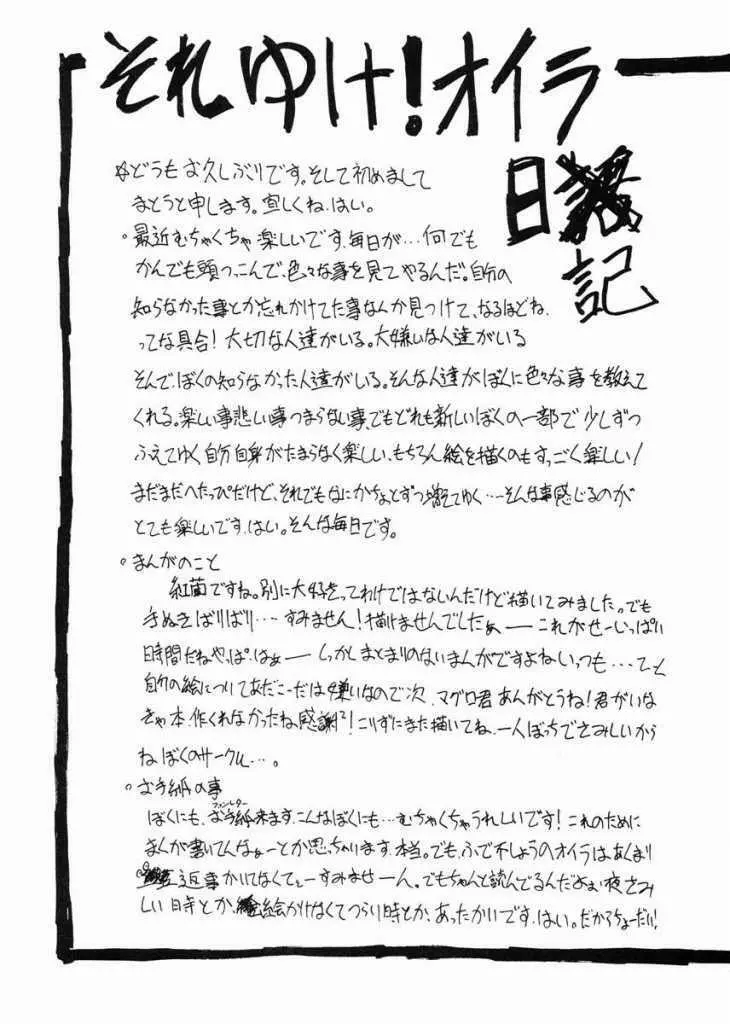 それゆけ!オイラ
日記
☆どうもお久しぶりです。そして初めまして
まとうと申します。宜しくね。はい。
・最近むちゃくちゃ楽しいです、毎日が…何でも
かんでも頭つっこんで、色々な事を見てやるんだ。自分の
知らなかった事とか忘れかけてた事なんか見つけて、なるほどね、
ってな具合!大切な人達がいる。大嫌いな人達がいる
そんで、ぼくの知らなかった人達がいる。そんな人達がぼくに色々な事を教えて
くれる。楽しい事悲しい事つまらない事、でもどれも新しいぼくの一部で少しずつ
ふえてゆく自分自身がたまらなく楽しい、もちろん絵を描くのもすっごく楽しい!
まだまだへたっぴだけど、それでもなにかちょとずつ増えてゆく…そんな事感じるのが
とても楽しいです、はい。そんな毎日です。
・まんがのこと
紅茜ですね。別に大好きってわけではないんだけど描いてみました。でも
手ぬきばりばり…すみません!描けませんでしたぁーこれがせーいっぱい
時間だねやっぱ。はぁーしっかしまとまりのないまんがですよねいっつも…てて
自分の絵についてあだこーだは嫌いなので次、マグロ君あんがとうね!君がいな
きゃ本、作くれなかったね感謝!こりずにまた描いてね、一人ぼっちでさみしいから
ねぼくのサークル…。
・お手紙の事
ぼくにも、お手紙(ファンレター)来ます、こんなぼくにも…むちゃくちゃうれしいです!これのために
まんが書いてんなぁーとか思っちゃいます、本当。でも、ふで不しょうのオイラはあんまり
返事かいてなくてぇーすみませーん。でもちゃんと読んでるんだよぉ夜さみ
しい日寺とか、絵かけなくてつらい時とか、あったかいです、はい。だからちょーだい!